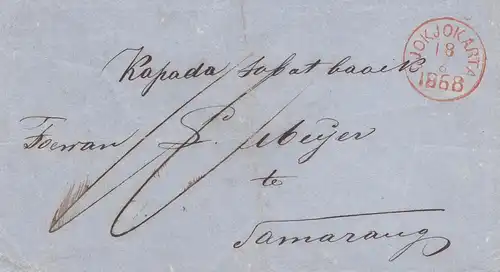 JOKJOKARTA
18
6
1868
Kapada sobat baaik
Toewan S. Meijer
te
Samarang